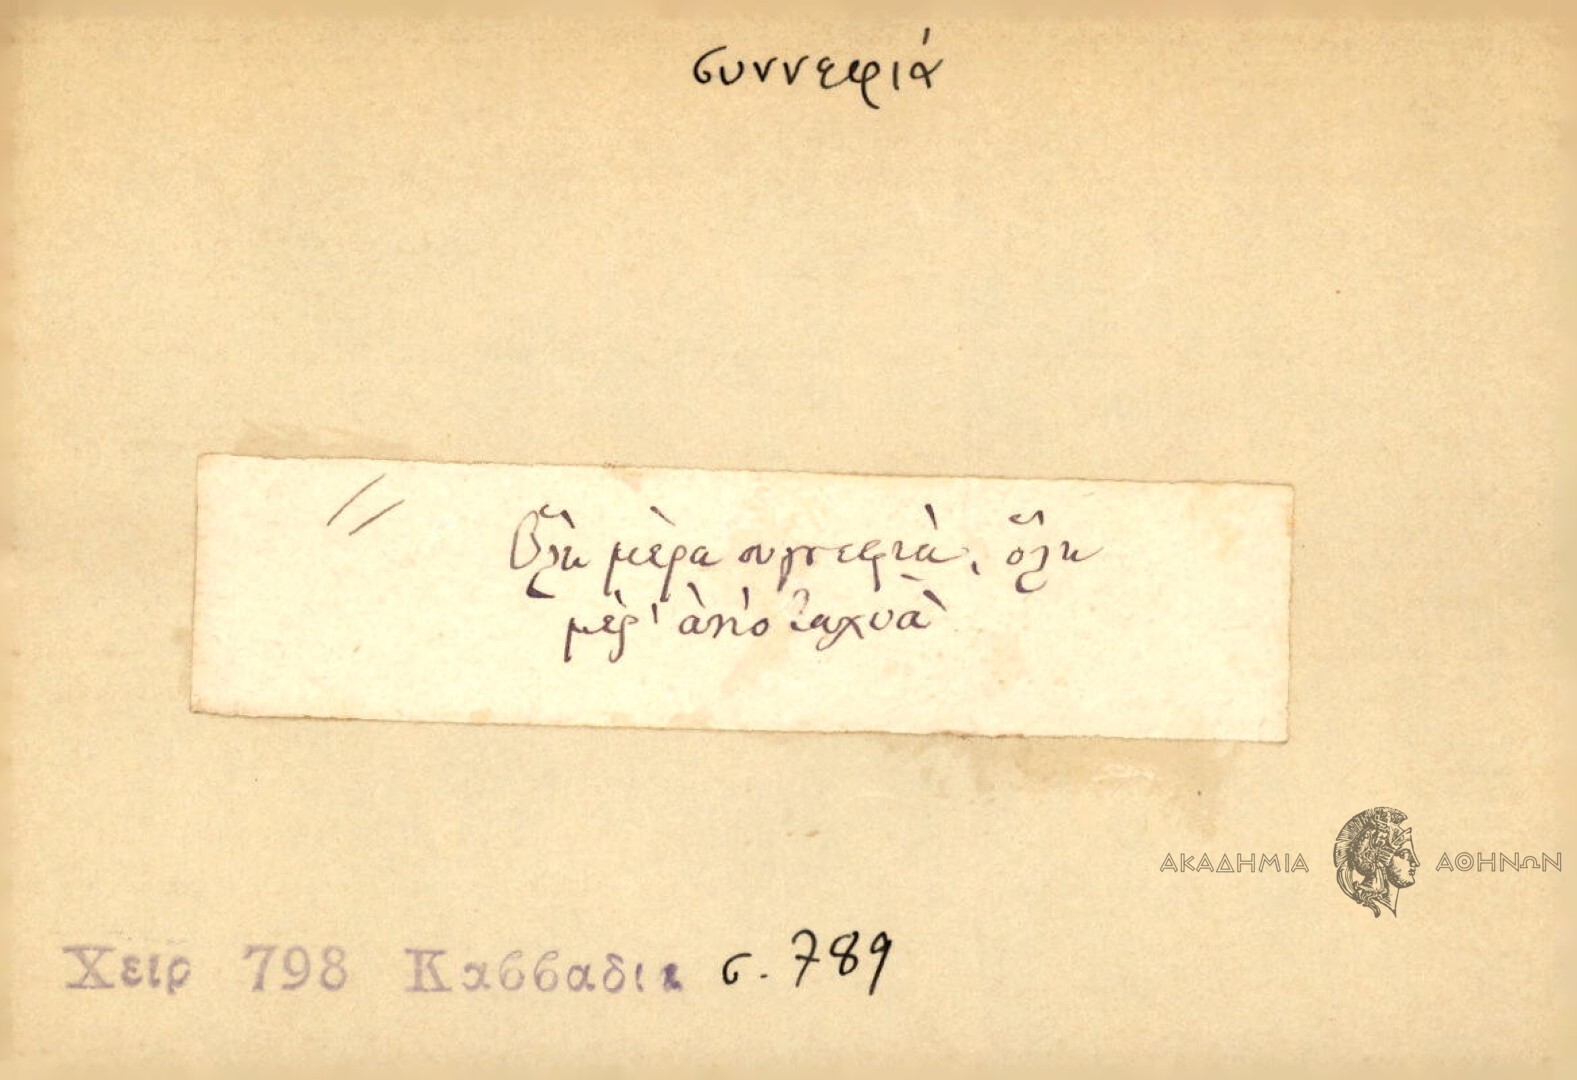 συννεφιά
Ὅλη μέρα συγνεφιὰ, ὅλη
μέρ' ἀπὸ ταχυὰ
ΑΚΑΔΗΜΙΑ ΑΘΗΝΩΝ
Χειρ 798 Καββαδία σ. 789